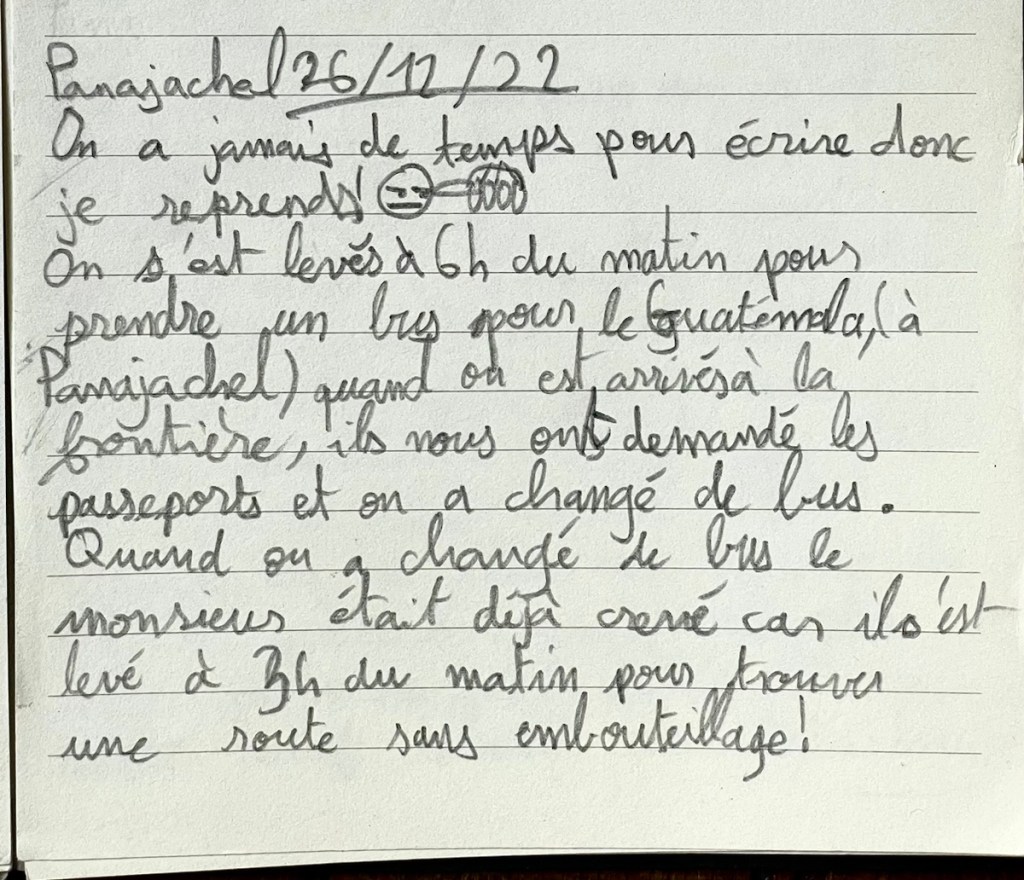 Panajachel 26/12/22
On a jamais de temps pour écrire donc
je reprends!
On s'est levés à 6h du matin pour
prendre un bus pour le Guatémala, (à
Panajachel) quand on est arrivés à la
frontière, ils nous ont demandé les
passeports et on a changé de bus.
Quand on a changé de bus le
monsieur était déjà crevé car il s'est
levé à 3h du matin pour trouver
une route sans embouteillage!